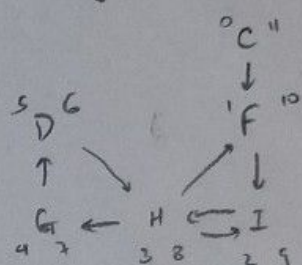 0 C 11
5 D 6
1 F 10
G H I
4 7 3 8 2 9